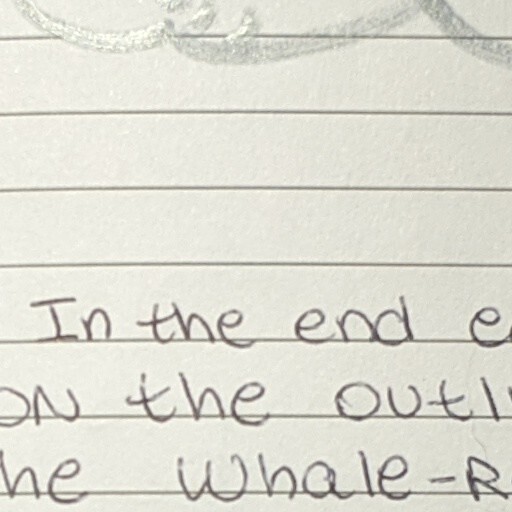 In the end e
on the outl
he Whale-R